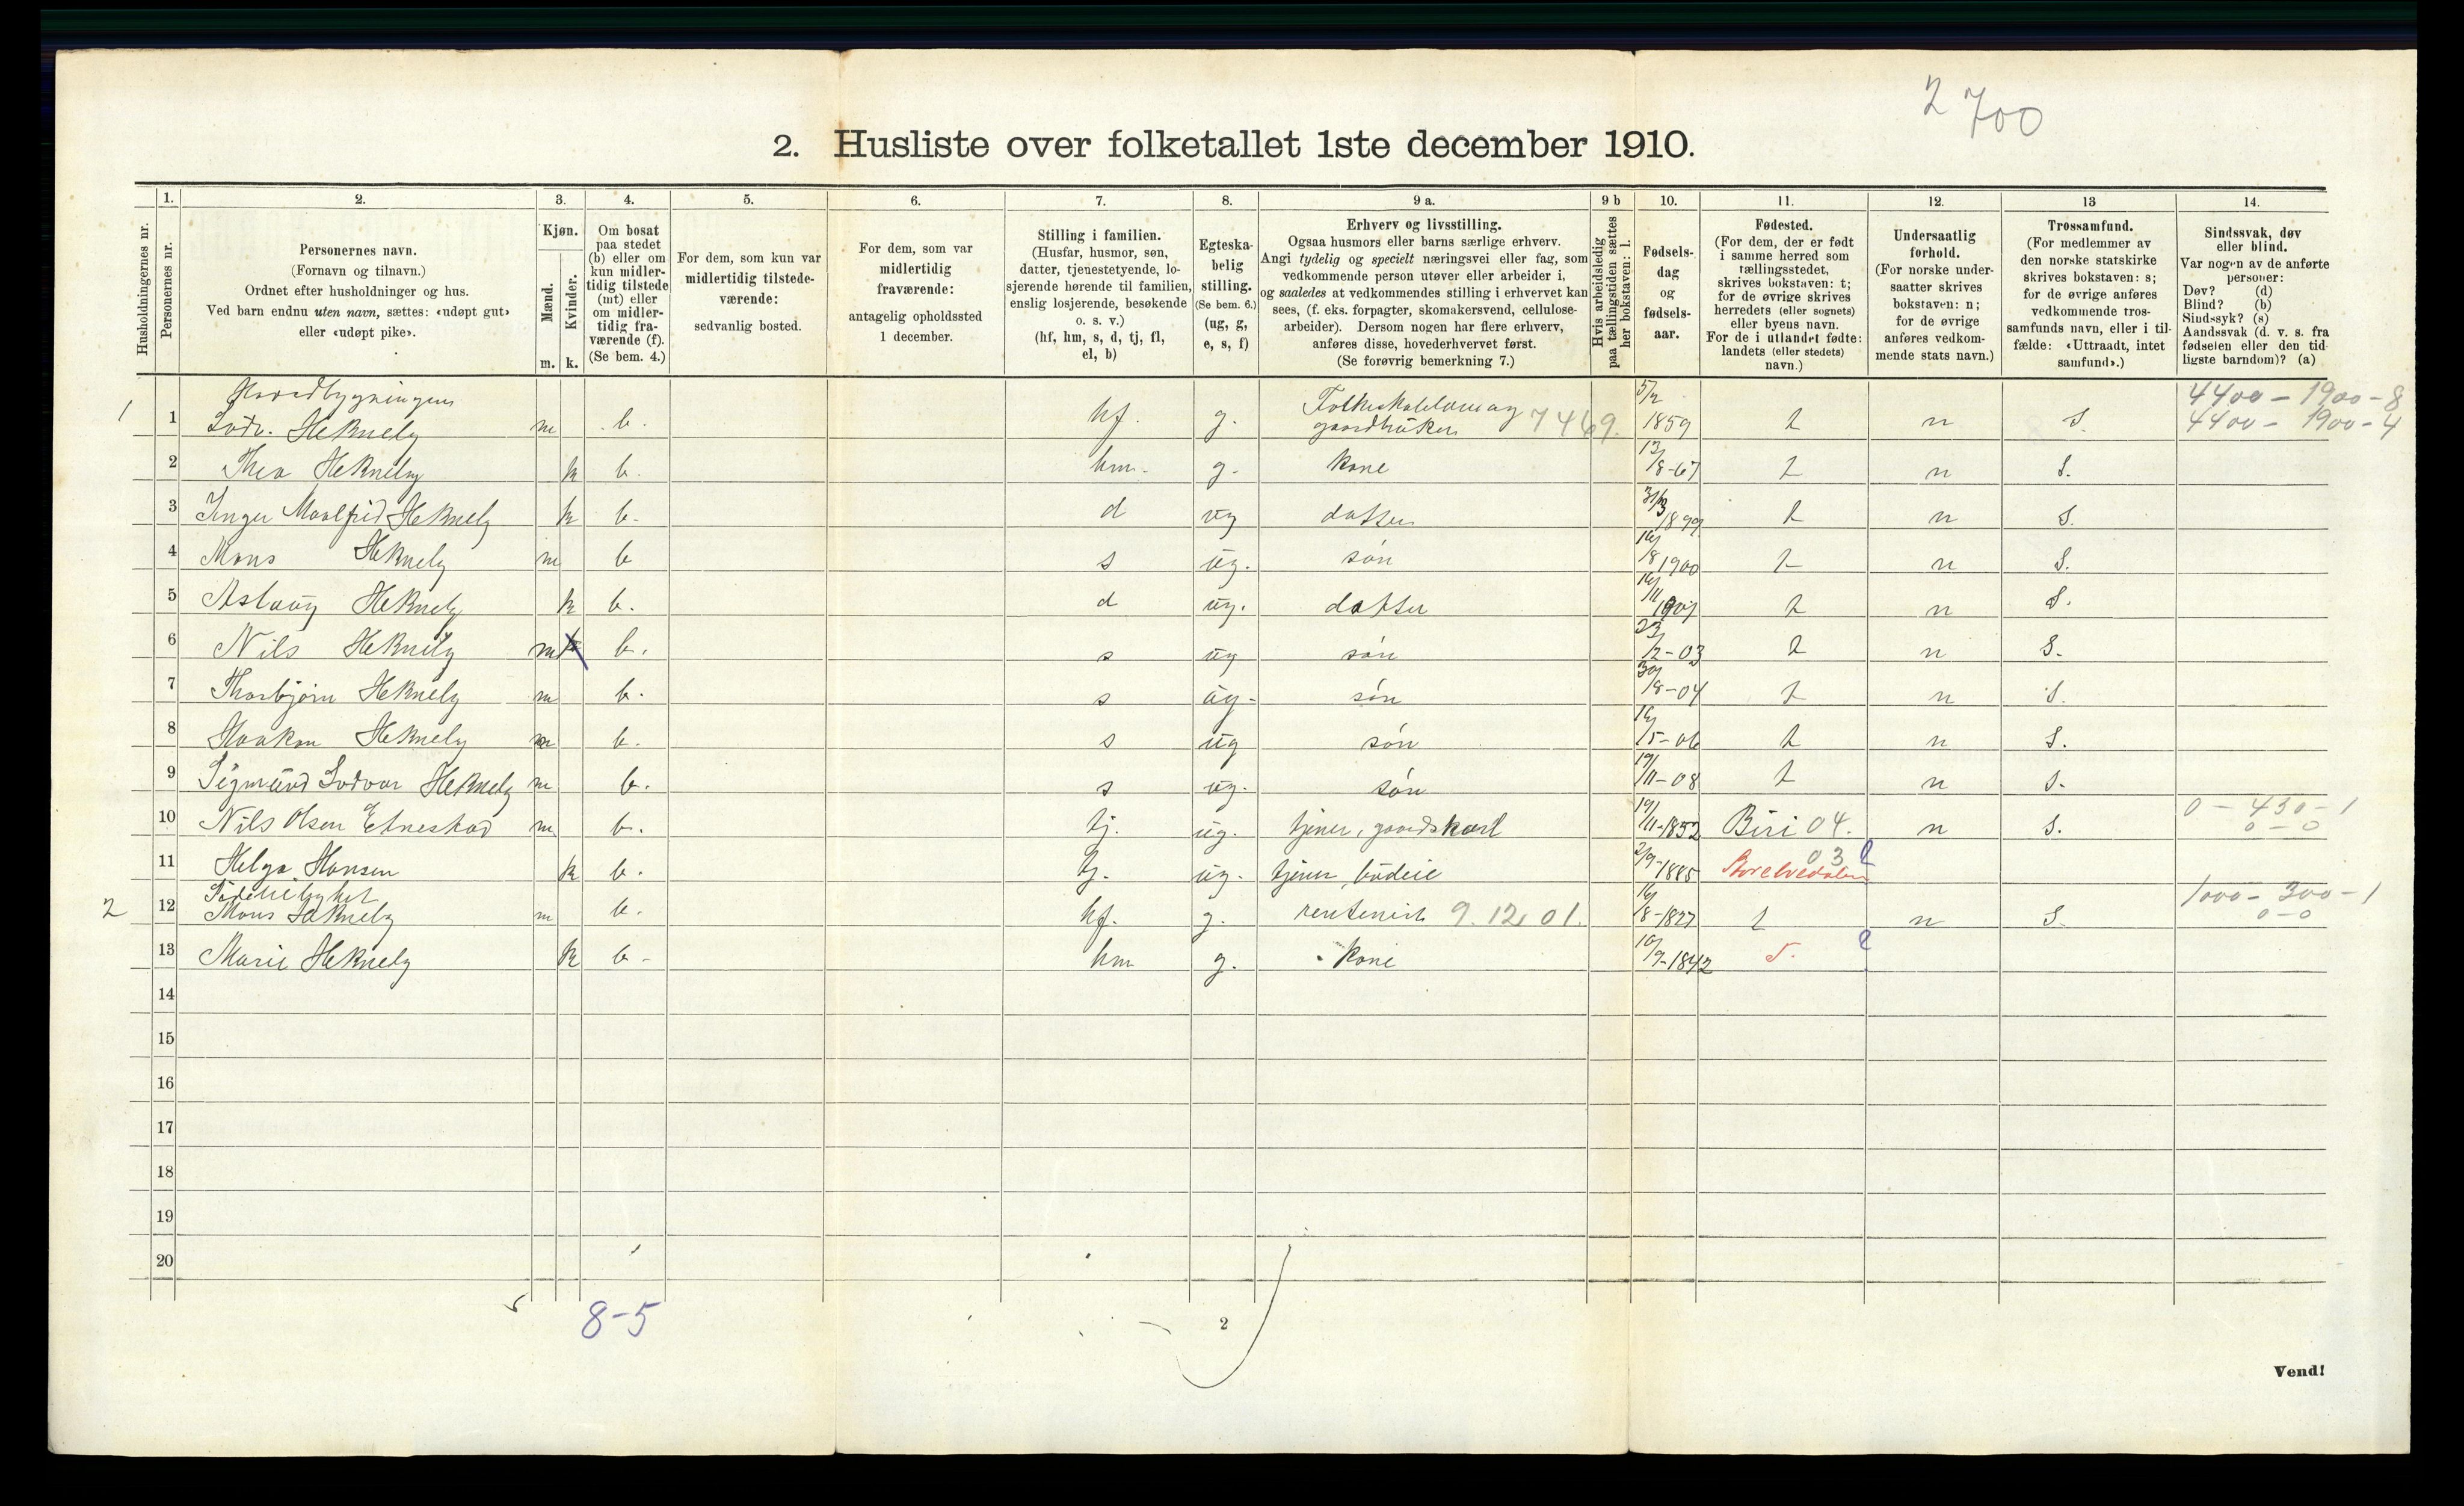 2 700
2. Husliste over folketallet 1ste december 1910.
Husholdningernes nr.
1. Personernes nr.
2. Personernes navn.
(Fornavn og tilnavn.)
Ordnet efter husholdninger og hus.
Ved barn endnu uten navn, sættes: «udøpt gut»
eller «udøpt pike».
3. Kjøn.
Mænd. m.
Kvinder. k.
4. Om bosat
paa stedet
(b) eller om
kun midler-
tidig tilstede
(mt) eller
om midler-
tidig fra-
værende (f).
(Se bem. 4.)
5. For dem, som kun var
midlertidig tilstede-
værende:
sedvanlig bosted.
6. For dem, som var
midlertidig
fraværende:
antagelig opholdssted
1 december.
7. Stilling i familien.
(Husfar, husmor, søn,
datter, tjenestetyende, lo-
sjerende hørende til familien,
enslig losjerende, besøkende
o. s. v.)
(hf, hm, s, d, tj, fl,
el, b)
8. Egteska-
belig
stilling.
(Se bem. 6.)
(ug, g,
e, s, f)
9 a. Erhverv og livsstilling.
Ogsaa husmors eller barns særlige erhverv.
Angi tydelig og specielt næringsvei eller fag, som
vedkommende person utøver eller arbeider i,
og saaledes at vedkommendes stilling i erhvervet kan
sees, (f. eks. forpagter, skomakersvend, cellulose-
arbeider). Dersom nogen har flere erhverv,
anføres disse, hovederhvervet først.
(Se forøvrig bemerkning 7.)
9 b Hvis arbeidsledig
paa tællingstiden sættes
her bokstaven: l.
10. Fødsels-
dag
og
fødsels-
aar.
11. Fødested.
(For dem, der er født
i samme herred som
tællingsstedet,
skrives bokstaven: t;
for de øvrige skrives
herredets (eller sognets)
eller byens navn.
For de i utlandet fødte:
landets (eller stedets)
navn.)
12. Undersaatlig
forhold.
(For norske under-
saatter skrives
bokstaven: n;
for de øvrige
anføres vedkom-
mende stats navn.)
13 Trossamfund.
(For medlemmer av
den norske statskirke
skrives bokstaven: s;
for de øvrige anføres
vedkommende tros-
samfunds navn, eller i til-
fælde: «Uttraadt, intet
samfund».)
14. Sindssvak, døv
eller blind.
Var nogen av de anførte
personer:
Døv? (d)
Blind? (b)
Sindssyk? (s)
Aandssvak (d. v. s. fra
fødselen eller den tid-
ligste barndom)? (a)
Hovedbygningen 4400 - 1900 - 8
1 1 Lodv. Heknely m b. hf. g. gaardbruker 7469. 5/2 1859 t n S. 4400 - 1900 - 4
2 Thea Heknely k b. hm. g. kone 13/8-67 t n S.
3 Inger Maalfrid Heknely k b. d ug datter 31/3 1899 t n S.
4 Mons Heknely m b s ug. søn 16/8 1900 t n S.
5 Aslaug Heknely k b. d ug. datter 16/11 1901 t n S.
6 Nils Heknely m b. s ug søn 23/2-03 t n S.
7 Thorbjørn Heknely m b. s ug- søn 30/8-04 t n S.
8 Haakon Heknely m b. s ug søn 16/5-06 t n S.
9 Sigmund Lodvar Heknely m b. s ug. søn 19/11-08 t n S.
10 Nils Olsen m b. tj. ug. tjener, gaardskarl 19/11-1852 Biri 04. n S. 0 - 430 - 1
0 - 0
11 Helga Hansen k b. tj. ug. tjener, budeie 2/9-1885 03
2 12 Mons Heknely m b. hf. g. 9.12.01. 16/8-1827 t n S. 1000 - 300 - 1
0 - 0
13 Marie Heknely k b - hm g. kone 10/9-1842
14
15
16
17
18
19
20
8-5
2
Vend!